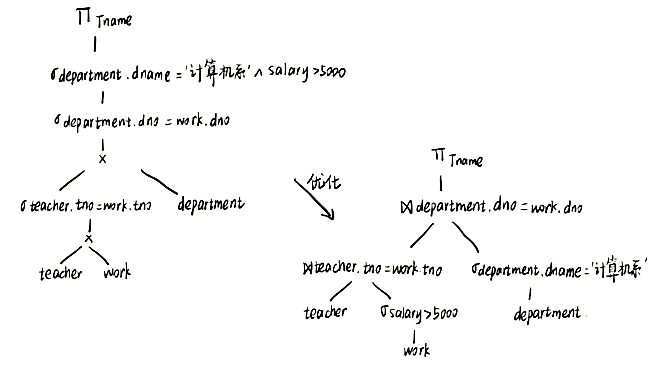 Π Tname
σ department.dname = '计算机系' ∧ salary>5000
σ department.dno = work.dno
×
σ teacher.tno=work.tno
department
×
teacher
work
优化
Π Tname
⋈ department.dno = work.dno
⋈ teacher.tno = work.tno
σ department.dname = '计算机系'
teacher
σ salary>5000
department
work